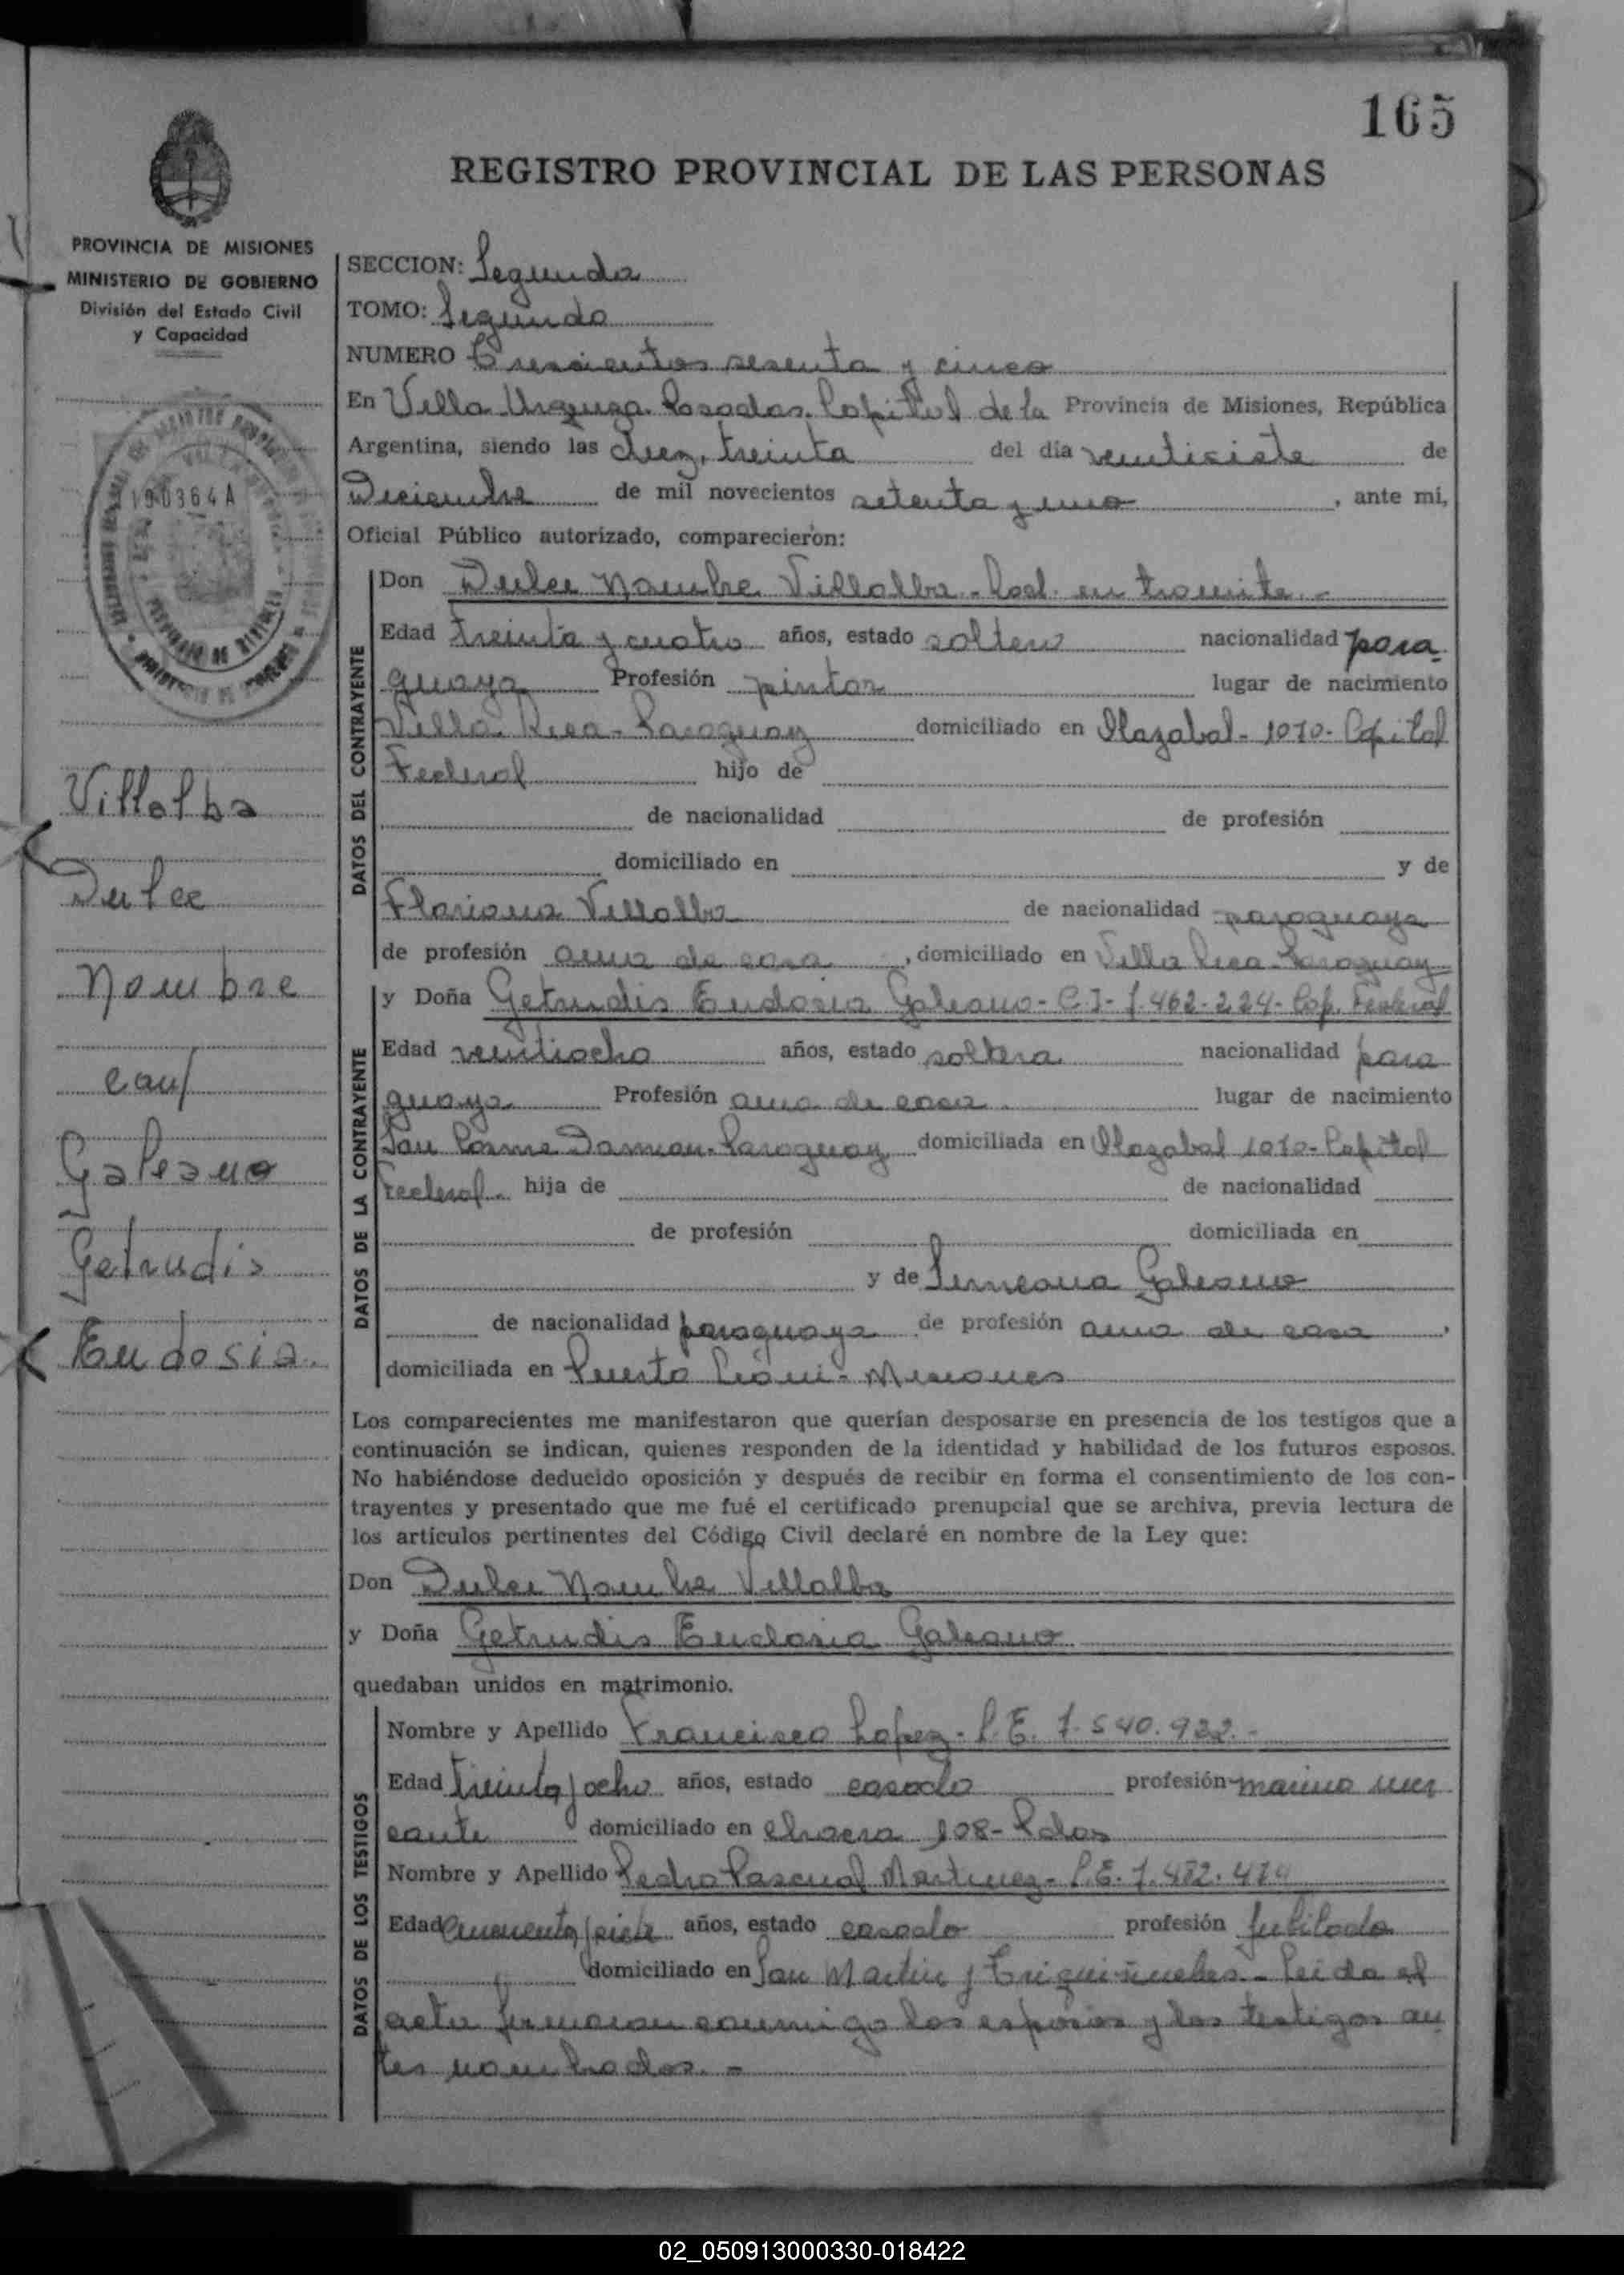 165
REGISTRO PROVINCIAL DE LAS PERSONAS
PROVINCIA DE MISIONES
MINISTERIO DE GOBIERNO
División del Estado Civil
y Capacidad
190364A
Villalba
Dulce
Nombre
con/
Galeano
Getrudis
Eudosia.
SECCION: Segunda
TOMO: Segundo
NUMERO Trescientos sesenta y cinco
En Villa Urquiza. Posadas. Capital de la Provincia de Misiones, República
Argentina, siendo las diez, treinta del día veintisiete de
Diciembre de mil novecientos setenta y uno, ante mí,
Oficial Público autorizado, comparecieron:
DATOS DEL CONTRAYENTE
Don Dulce Nombre Villalba - en tramite. -
Edad treinta y cuatro años, estado soltero nacionalidad para-
guaya Profesión pintor lugar de nacimiento
Villa Rica - Paraguay domiciliado en Olazabal - 1070 - Capital
Federal hijo de
de nacionalidad de profesión
domiciliado en y de
Floriana Villalba de nacionalidad paraguaya
de profesión ama de casa, domiciliado en Villa Rica - Paraguay
DATOS DE LA CONTRAYENTE
y Doña Getrudis Eudosia Galeano - C.I - 7.462.224 - Cap. Federal
Edad veintiocho años, estado soltera nacionalidad para
guaya Profesión ama de casa. lugar de nacimiento
San Cosme Damian - Paraguay domiciliada en Olazabal 1070 - Capital
Federal. hija de de nacionalidad
de profesión domiciliada en
y de Simeana Galeano
de nacionalidad paraguaya de profesión ama de casa,
domiciliada en Puerto - Misiones
Los comparecientes me manifestaron que querían desposarse en presencia de los testigos que a
continuación se indican, quienes responden de la identidad y habilidad de los futuros esposos.
No habiéndose deducido oposición y después de recibir en forma el consentimiento de los con-
trayentes y presentado que me fué el certificado prenupcial que se archiva, previa lectura de
los artículos pertinentes del Código Civil declaré en nombre de la Ley que:
Don Dulce Nombre Villalba
y Doña Getrudis Eudosia Galeano
quedaban unidos en matrimonio.
DATOS DE LOS TESTIGOS
Nombre y Apellido Francisco Lopez - L.E. 7.540.922. -
Edad treinta y ocho años, estado casado profesión marino mer
cante domiciliado en chacra 108 - Pdas
Nombre y Apellido Pedro Pascual Martinez - L.E. 7.482.
Edad siete años, estado casado profesión jubilado
domiciliado en San Martin y - Leida el
acta firmaron conmigo los esposos y los testigos an
tes nombrados. -
02_050913000330-018422